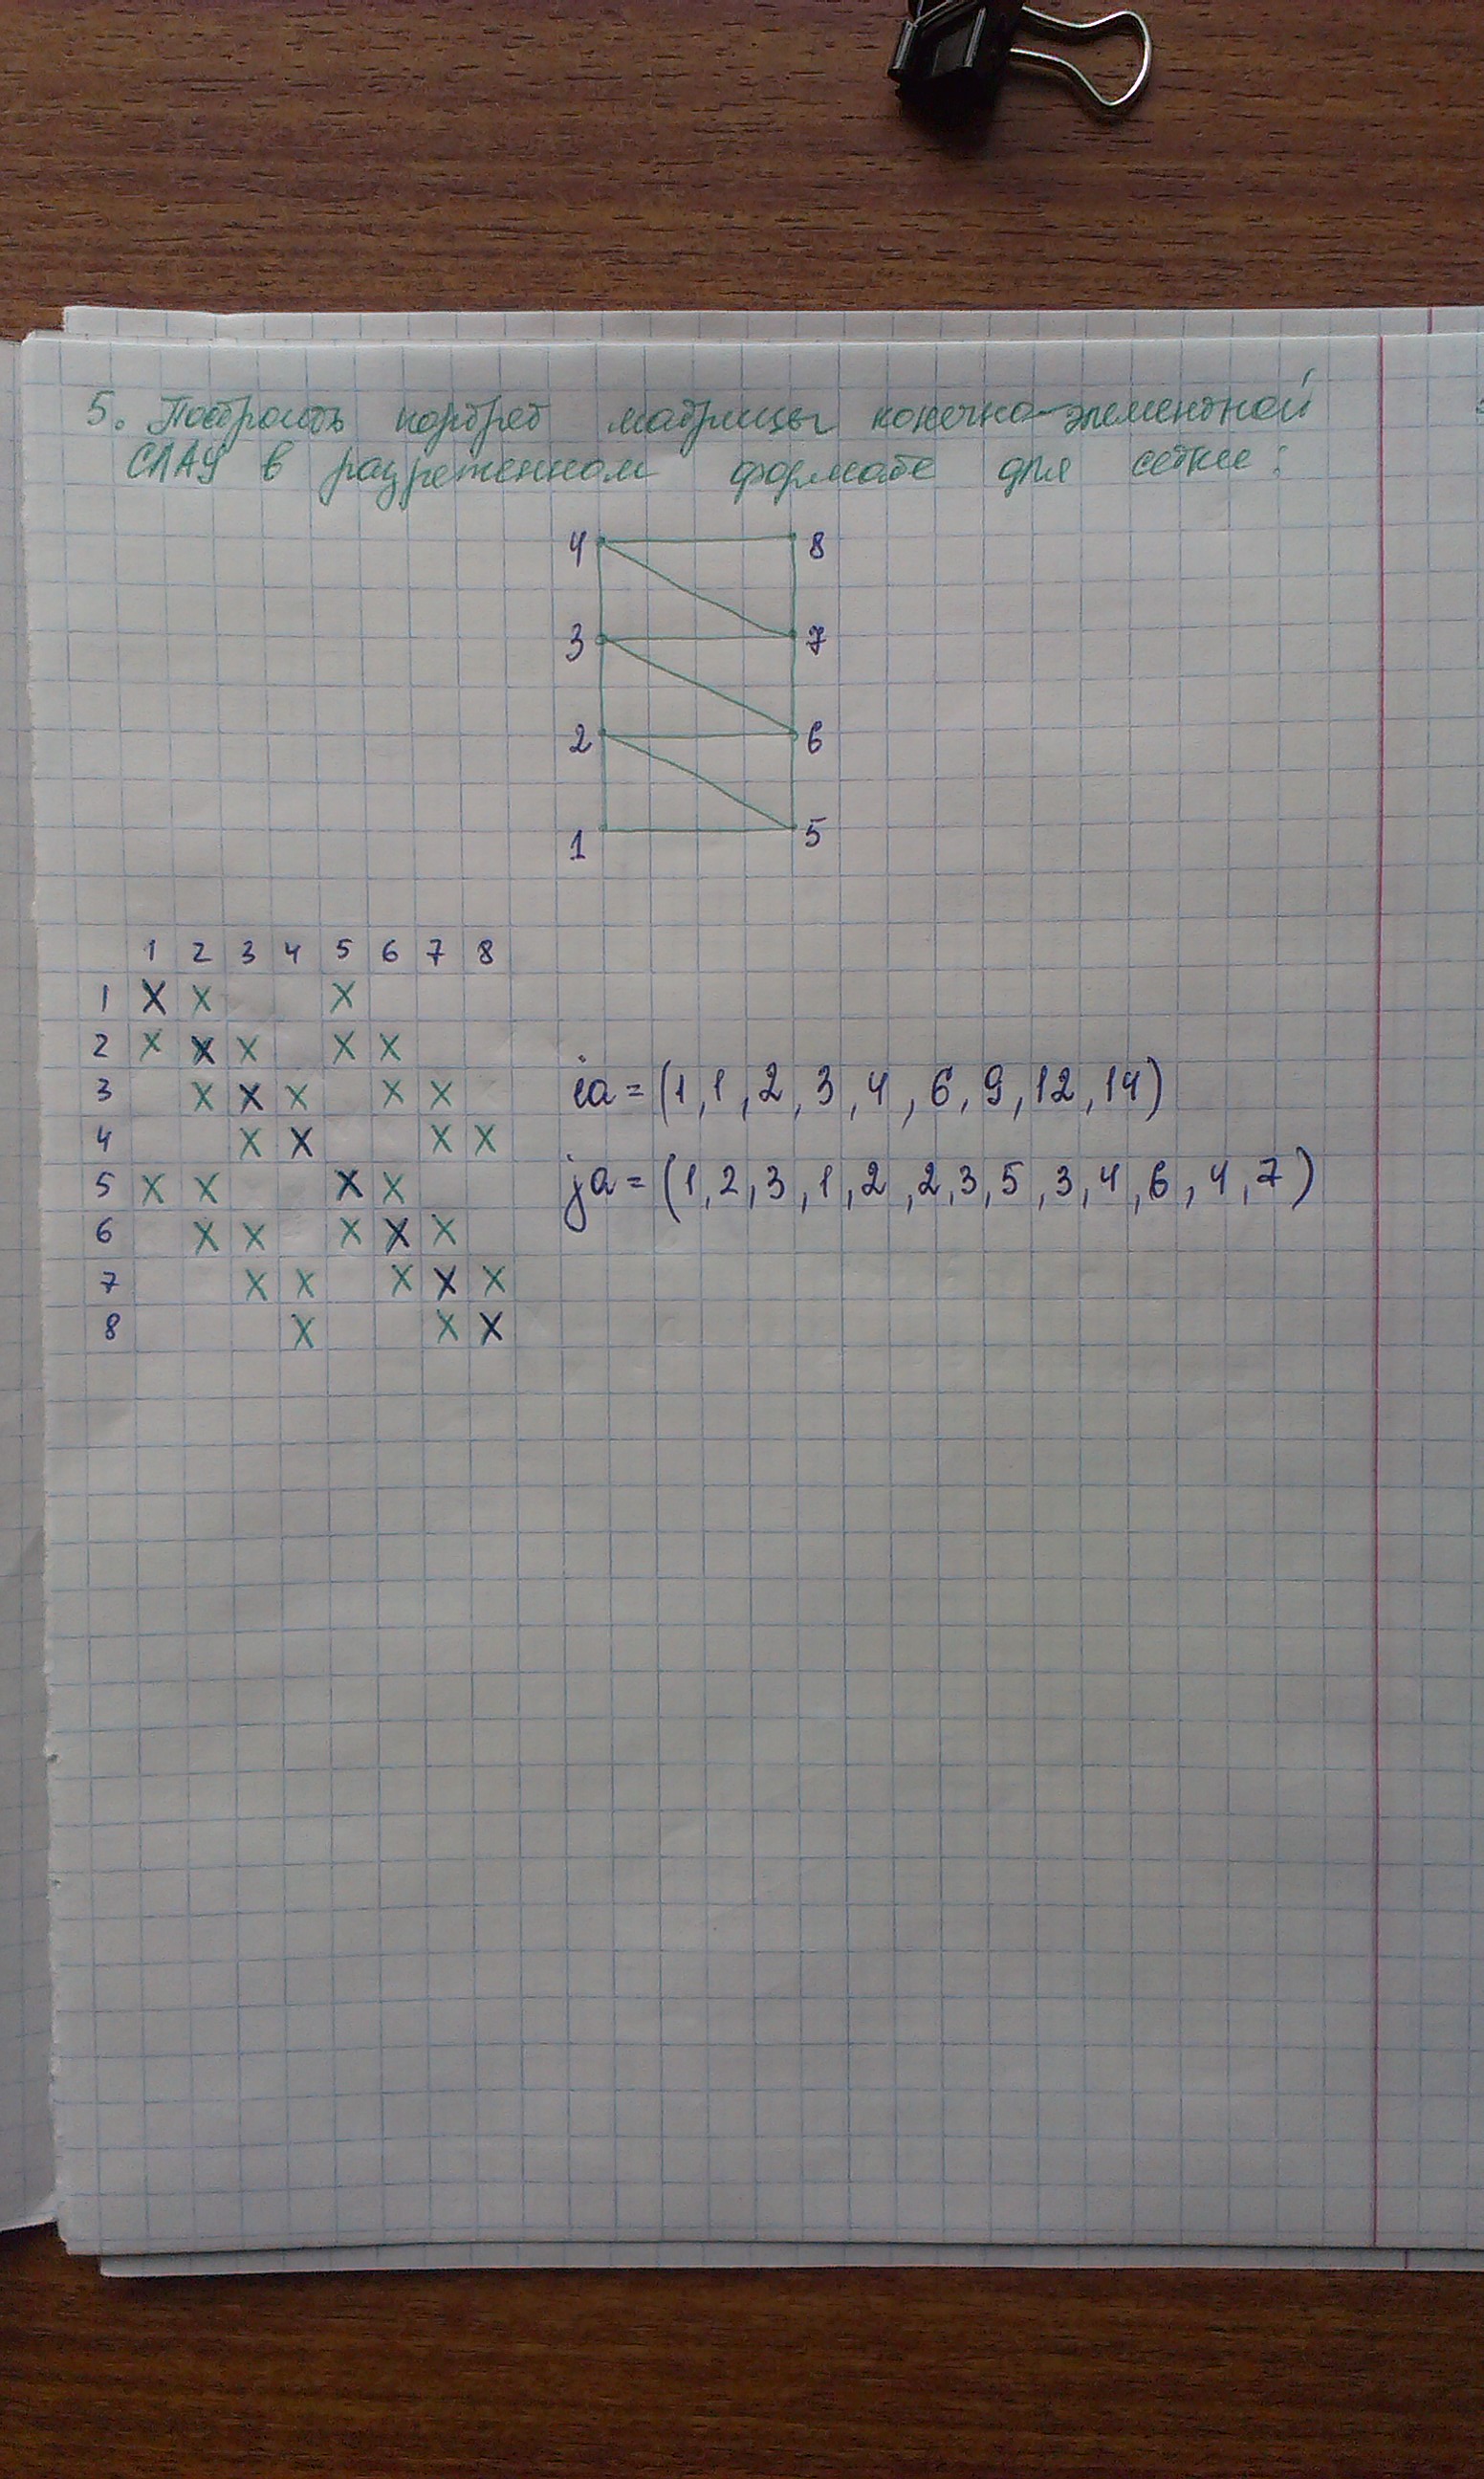 5. Построить портрет матрицы конечно-элементной
СЛАУ в разреженном формате для сетки:
4 8
3 7
2 6
1 5
1 2 3 4 5 6 7 8
1 X X X
2 X X X X X
3 X X X X X
4 X X X X
5 X X X X
6 X X X X X
7 X X X X X
8 X X X
ia = (1, 1, 2, 3, 4, 6, 9, 12, 14)
ja = (1, 2, 3, 1, 2, 2, 3, 5, 3, 4, 6, 4, 7)